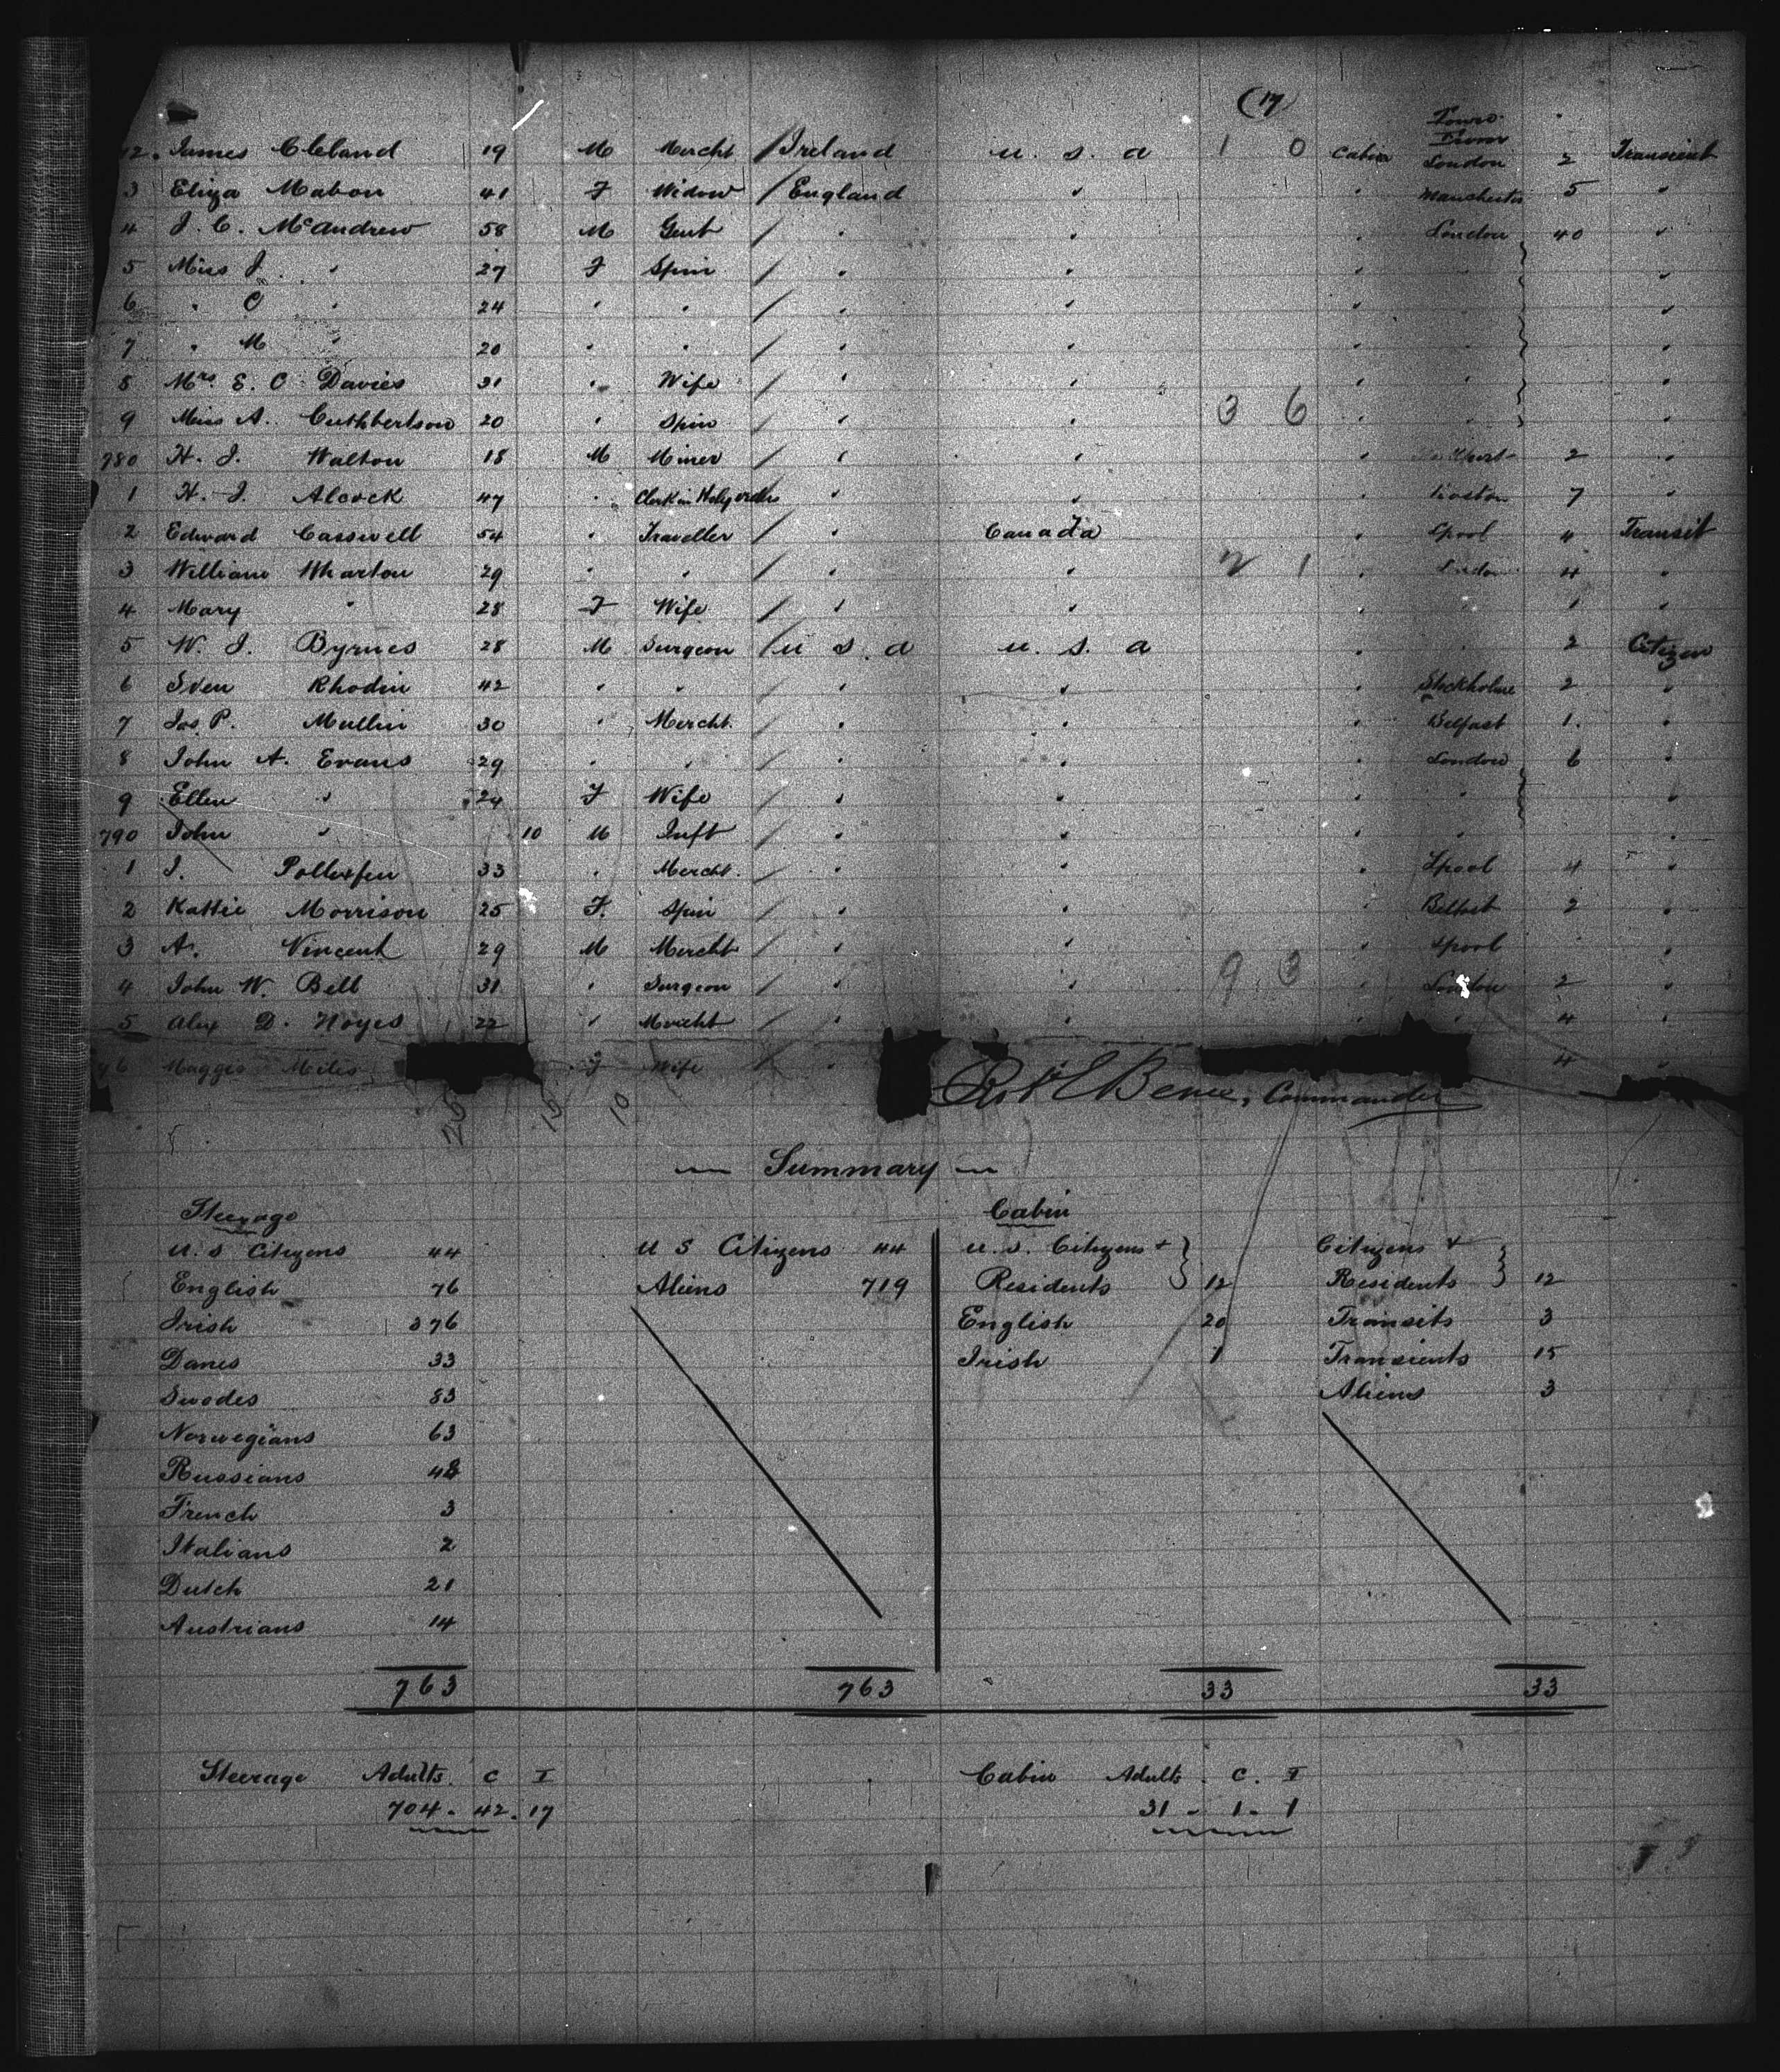 (17)
Town
From
72. James Cleland 19 M Mercht / Ireland U. S. A 1 0 Cabin London 2 Transient
3 Eliza Mabon 41 F Widow / England " " Manchester 5 "
4 J. C. McAndrew 58 M Gent / " " " London 40 "
5 Miss J. " 27 F Spin / " " " " "
6 " C " 24 " " / " " " "
7 " M " 20 " " / " " " "
8 Mrs. E. C. Davies 31 " Wife / " " " " "
9 Miss A. Cuthbertson 20 " Spin / " " 3 6 " " "
780 H. J. Walton 18 M Miner / " " " 2 "
1 H. J. Alcock 47 " Clerk in Holy orders / " " " 7 "
2 Edward Casswell 54 " Traveller / " Canada " Lpool 4 Transit
3 William Wharton 29 " " / " " 2 1 " London 4 "
4 Mary " 28 F Wife / " " " 1 "
5 W. J. Byrnes 28 M Surgeon / U S. A U. S. A " " 2 Citizen
6 Sven Rhodin 42 " " / " " " Stockholm 2 "
7 Jas. P. Mullin 30 " Mercht. / " " " Belfast 1. "
8 John A. Evans 29 " " / " " " London 6 "
9 Ellen " 24 F Wife / " " " " "
790 John " 10 M Inft / " " " " "
1 J. Pollexfen 33 " Mercht. / " " " Lpool 4 "
2 Kattie Morrison 25 F. Spin / " " " Belfast 2 "
3 A. Vincent 29 M Mercht / " " " Lpool "
4 John W. Bell 31 " Surgeon / " " 9 3 " London 2 "
5 Alex D. Noyes 22 " Mercht / " " " " 4 "
96 Maggie Miles F Wife / " 4 "
Commander
25 15 10
Summary
Steerage Cabin
U. S Citizens 44 U S Citizens 44 U. S. Citizens + } Citizens + }
English 76 Aliens 719 Residents 12 Residents 12
Irish 376 English 20 Transits 3
Danes 33 Irish 1 Transients 15
Swedes 83 Aliens 3
Norwegians 63
Russians 48
French 3
Italians 2
Dutch 21
Austrians 14
763 763 33 33
Steerage Adults. C I Cabin Adults. C. I
704 - 42. 17 31 - 1 - 1